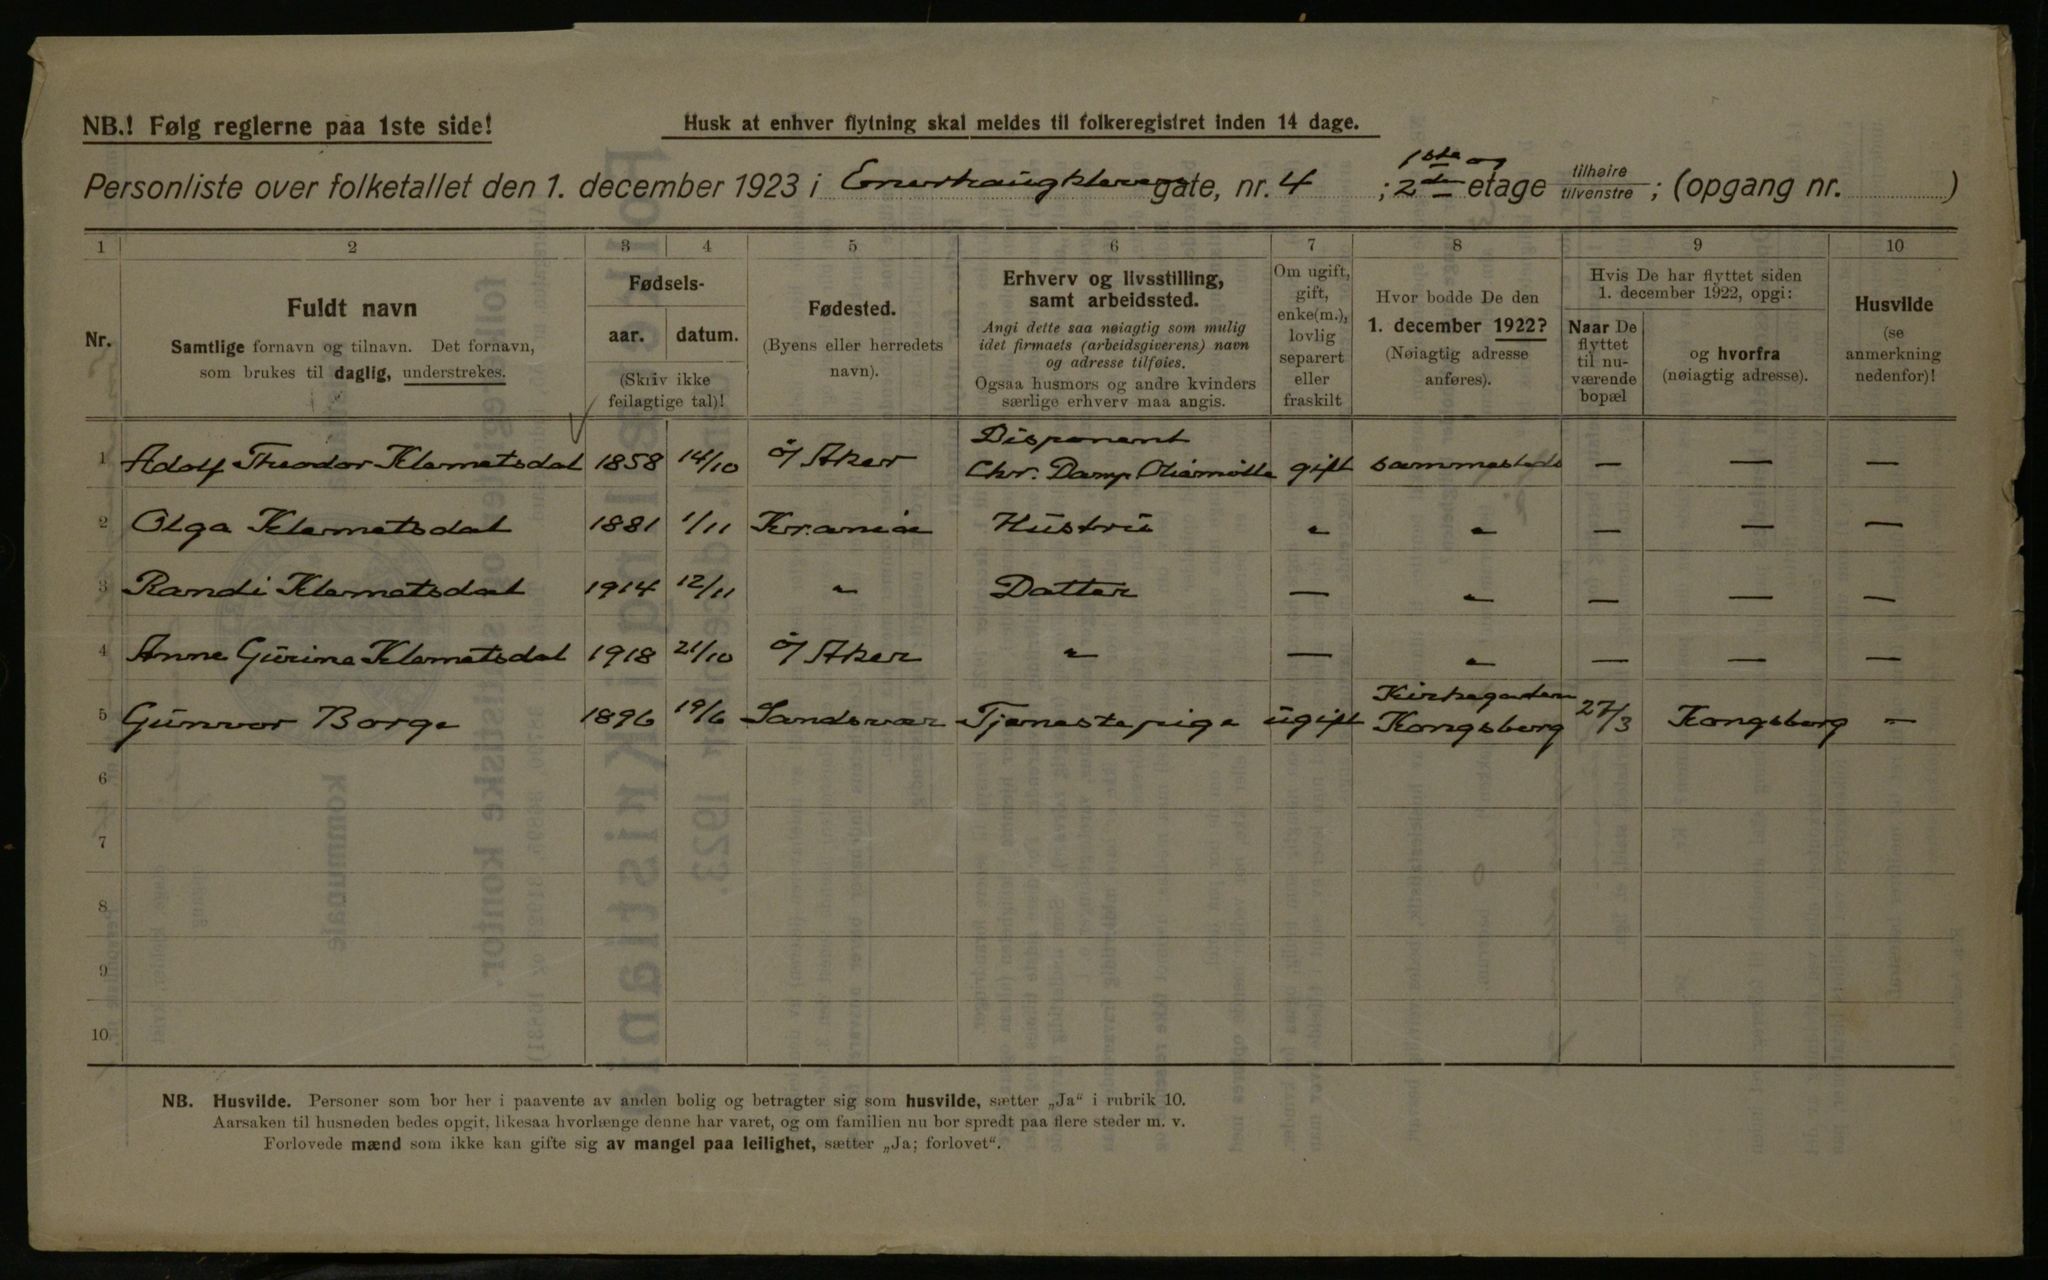 NB.! Følg reglerne paa 1ste side!
Husk at enhver flytning skal meldes til folkeregistret inden 14 dage.
1ste og
Personliste over folketallet den 1. december 1923 i gate, nr. 4 ; 2den etage tilhøire tilvenstre ; (opgang nr. )
1 2 3 4 5 6 7 8 9 10
Nr.
Fuldt navn
Samtlige fornavn og tilnavn. Det fornavn,
som brukes til daglig, understrekes.
Fødsels-
aar. datum.
(Skriv ikke
feilagtige tal)!
Fødested.
(Byens eller herredets
navn).
Erhverv og livsstilling,
samt arbeidssted.
Angi dette saa nøiagtig som mulig
idet firmaets (arbeidsgiverens) navn
og adresse tilføies.
Ogsaa husmors og andre kvinders
særlige erhverv maa angis.
Om ugift,
gift,
enke(m.),
lovlig
separert
eller
fraskilt
Hvor bodde De den
1. december 1922?
(Nøiagtig adresse
anføres).
Hvis De har flyttet siden
1. december 1922, opgi:
Naar De
flyttet
til nu-
værende
bopæl
og hvorfra
(nøiagtig adresse).
Husvilde
(se
anmerkning
nedenfor)!
Disponent
1 Adolf Theodor Klemetsdal 1858 14/10 Ø/ Aker Chr. Damp Oliemølle gift sammesteds — — —
2 Olga Klemetsdal 1881 1/11 Kr.ania Hustru " " — — —
3 Randi Klemetsdal 1914 12/11 " Datter — " — — —
4 Anne Gurine Klemetsdal 1918 21/10 Ø/ Aker " — " — — —
Kirkegaden
5 Gunvor Borge 1896 19/6 Sandsvær Tjenestepige ugift Kongsberg 27/3 Kongsberg —
6
7
8
9
10
NB. Husvilde. Personer som bor her i paavente av anden bolig og betragter sig som husvilde, sætter „Ja“ i rubrik 10.
Aarsaken til husnøden bedes opgit, likesaa hvorlænge denne har varet, og om familien nu bor spredt paa flere steder m. v.
Forlovede mænd som ikke kan gifte sig av mangel paa leilighet, sætter „Ja; forlovet“.